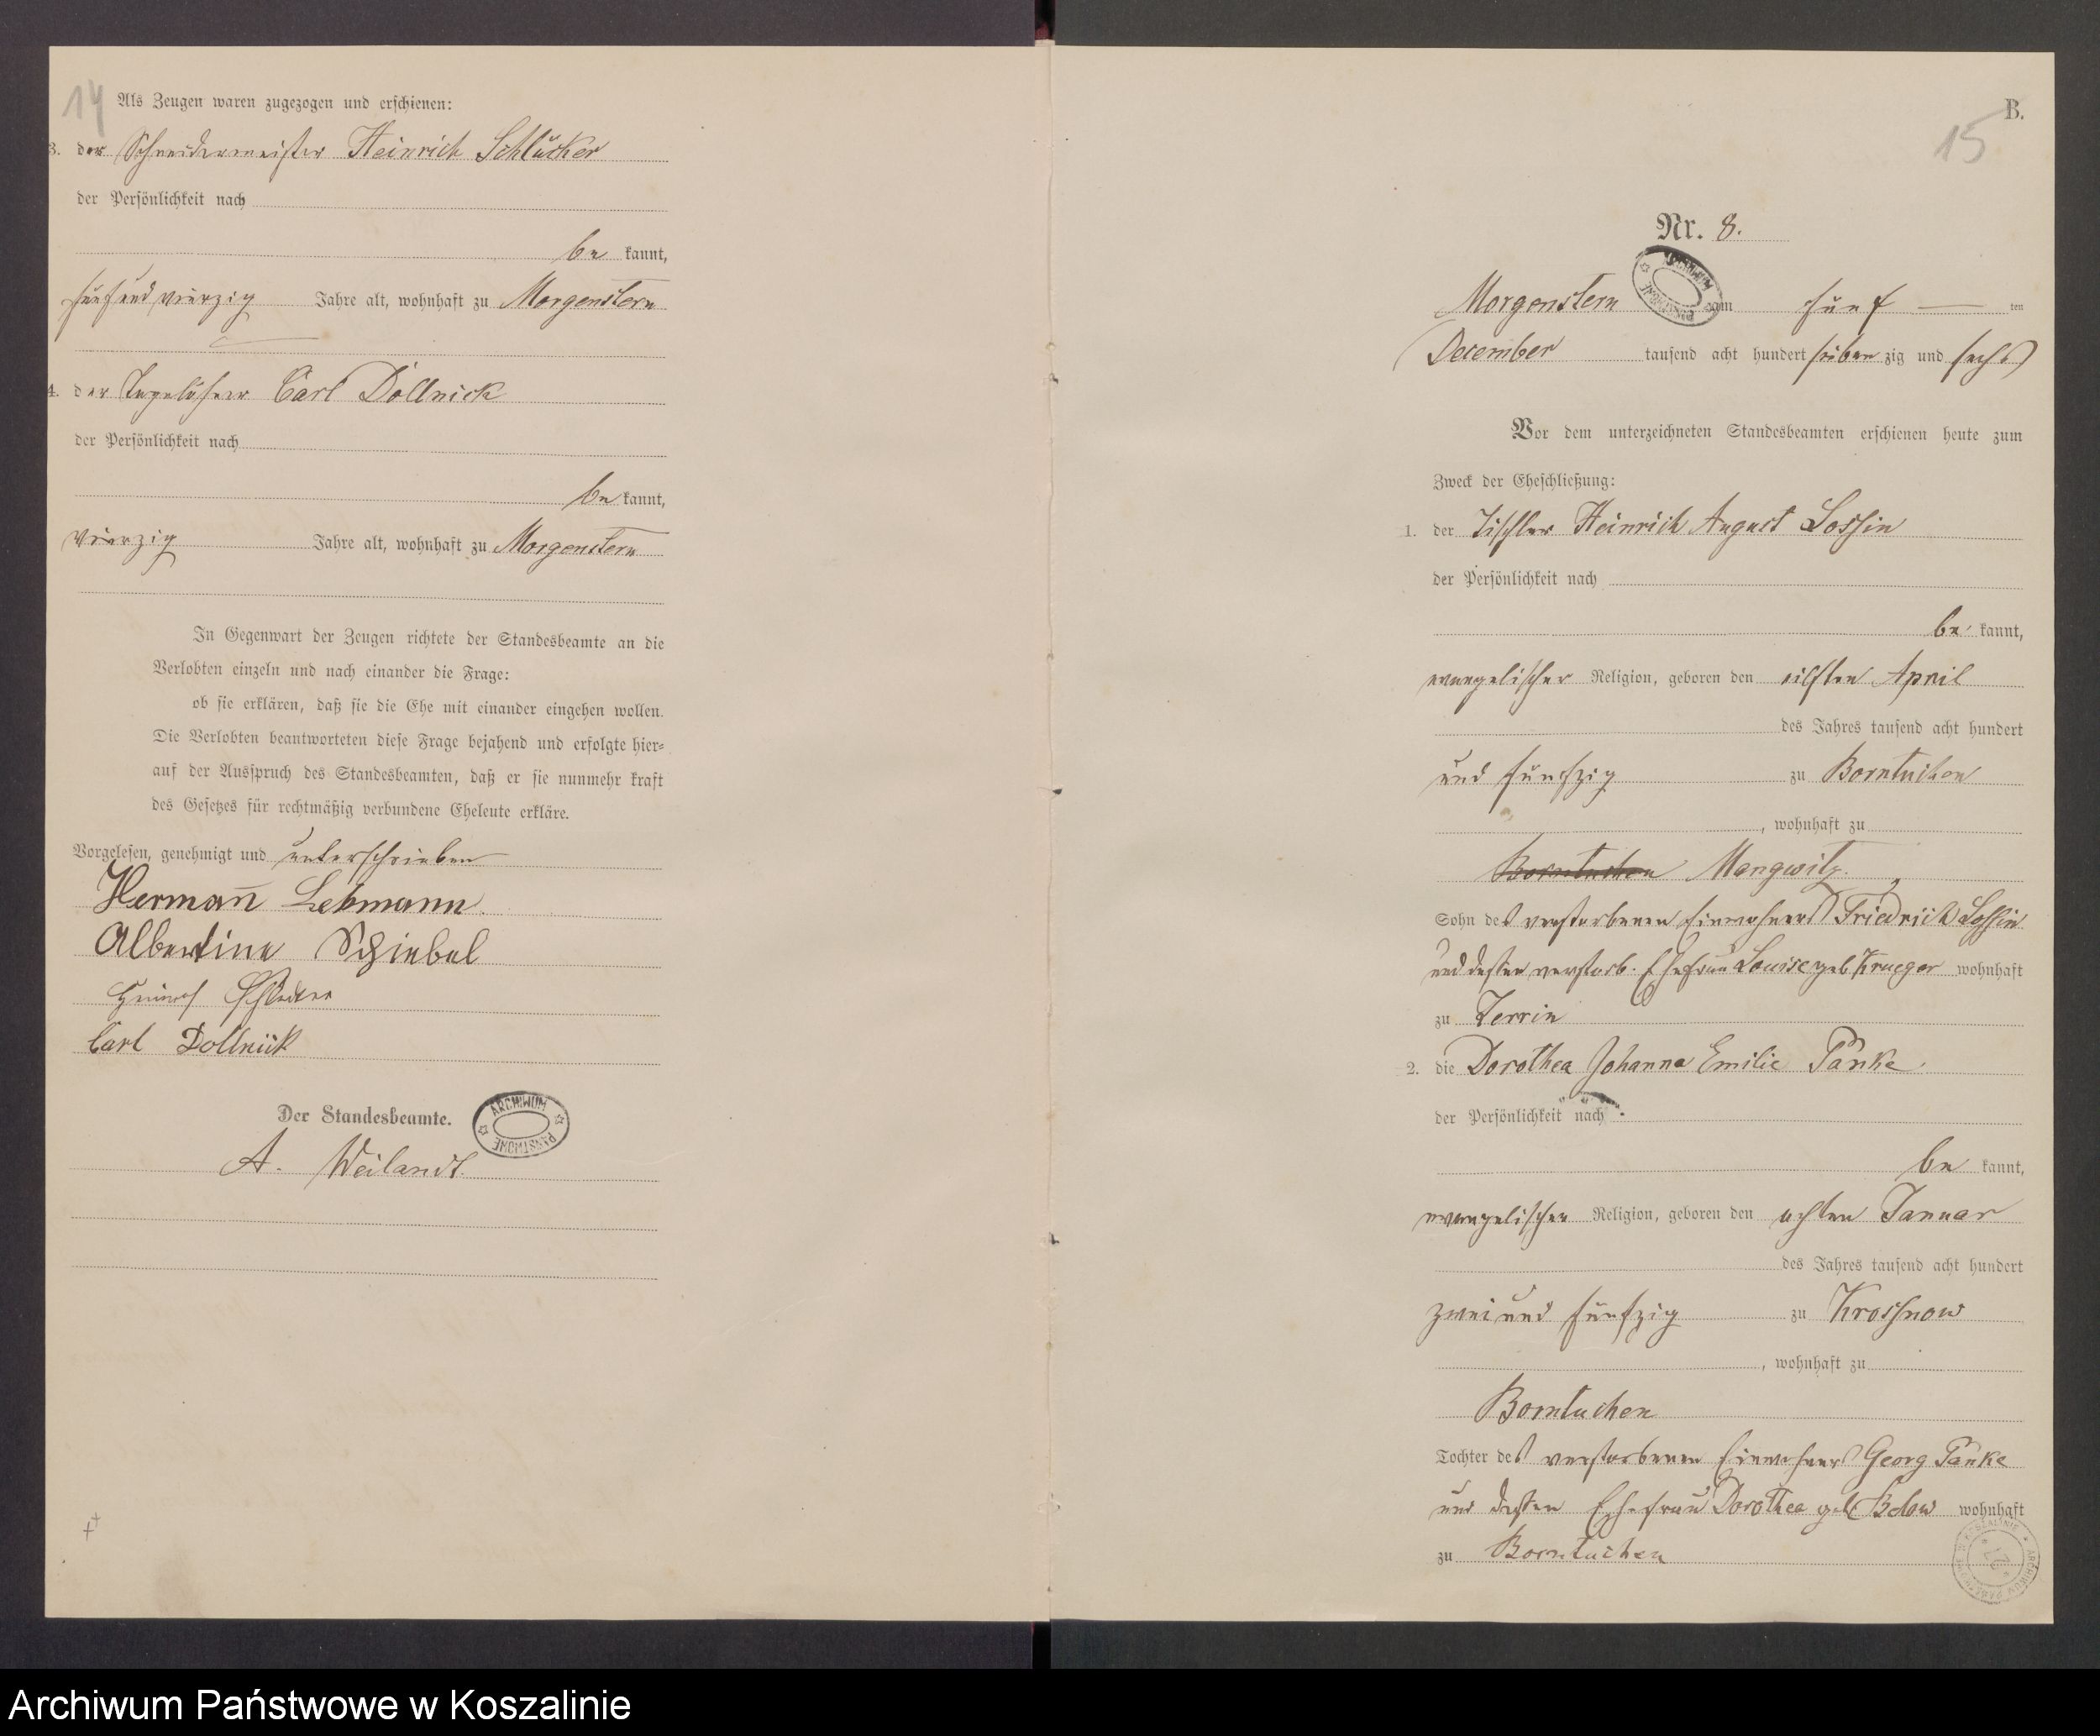 14
Als Zeugen waren zugezogen und erschienen:
3. der Schneidermeister Heinrich Schlücker
der Persönlichkeit nach
be kannt,
fünfundvierzig Jahre alt, wohnhaft zu Morgenstern
4. der Tagelöhner Carl Dollnick
der Persönlichkeit nach
be kannt,
vierzig Jahre alt, wohnhaft zu Morgenstern
In Gegenwart der Zeugen richtete der Standesbeamte an die
Verlobten einzeln und nach einander die Frage:
ob sie erklären, daß sie die Ehe mit einander eingehen wollen.
Die Verlobten beantworteten diese Frage bejahend und erfolgte hier=
auf der Ausspruch des Standesbeamten, daß er sie nunmehr kraft
des Gesetzes für rechtmäßig verbundene Eheleute erkläre.
Vorgelesen, genehmigt und unterschrieben
Herman̄ Lebmann.
Albertine Schiebel
Heinrich
Carl Dollnick
Der Standesbeamte.
ARCHIWUM PAŃSTWOWE
A. Weilandt.
B.
15
Nr. 8.
ARCHIWUM PAŃSTWOWE
Morgenstern am fünf — ten
December tausend acht hundert sieben zig und sechs
Vor dem unterzeichneten Standesbeamten erschienen heute zum
Zweck der Eheschließung:
1. der Tischler Heinrich August Lossin
der Persönlichkeit nach
be kannt,
evangelischer Religion, geboren den eilften April
des Jahres tausend acht hundert
und fünfzig zu Borntuchen
, wohnhaft zu
Borntuchen Mangwitz.
Sohn des verstorbenen Einwohners Friedrich Lossin
und dessen verstorb. Ehefrau Louise geb Krueger wohnhaft
zu Zerrin
2. die Dorothea Johanna Emilie Pänke
der Persönlichkeit nach
be kannt,
evangelischer Religion, geboren den achten Januar
des Jahres tausend acht hundert
zwei und fünfzig zu Krossnow
, wohnhaft zu
Borntuchen
Tochter des verstorbenen Einwohners Georg Pänke
und dessen Ehefrau Dorothea geb wohnhaft
zu Borntuchen
ARCHIWUM PAŃSTWOWE W KOSZALINIE
27
Archiwum Państwowe w Koszalinie